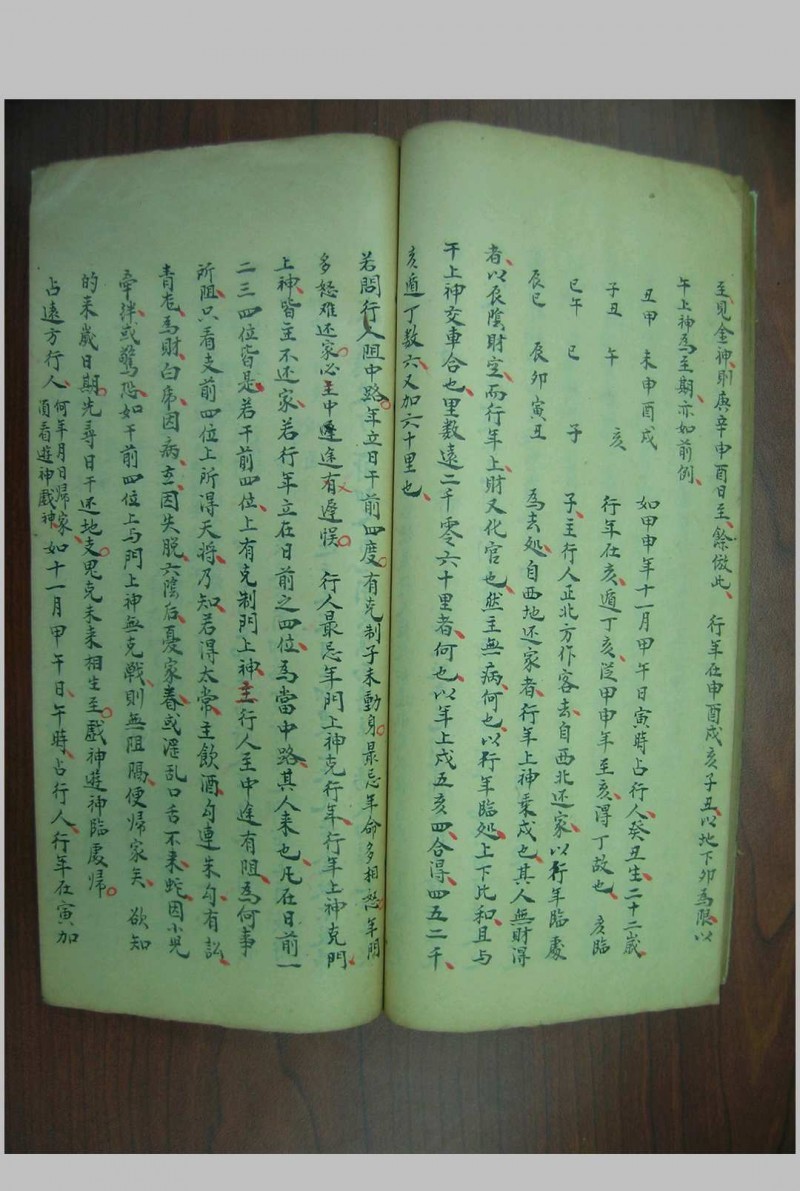 至見金神則庚辛申酉日至餘倣此　行年在申酉戌亥子丑以地下卯為限以
午上神為至期亦如前例
丑甲　未申酉戌　如甲申年十一月甲午日寅時占行人癸丑生二十二歲
子丑　午　亥　行年在亥遁丁亥從甲申年至亥得丁故也　亥臨
巳午　巳　子　子主行人正北方作客去自西北还家以行年臨處
辰巳　辰卯寅丑　為去処自西地还家者行年上神乘戌也其人無財得
者以辰陰財空而行年上財又化官也然主無病何也以行年臨処上下比和且与
干上神交車合也里数遠二千零六十里者何也以年上戌五亥四合得四五二千
亥遁丁数六又加六十里也
若問行人阻中路年立日干前四度有克制子未動身最忌年命多相愆年門
多怒难还家必主中逢途有遲悮　行人最忌年門上神克行年行年上神克門
上神皆主不还家若行年立在日前之四位為當中路其人来也凡在日前一
二三四位皆是若干前四位上有克制門上神主行人至中途有阻為何事
所阻只看支前四位上所得天將乃知若得太常主飲酒勾連朱勾有訟
青龙為財白虎因病玄因失脱六陰后憂家眷或淫乱口舌不来蛇因小児
牵絆或驚恐如干前四位上与門上神無克戰則無阻隔便歸家矣　欲知
的来歲日期先尋日干还地支鬼克未来相生至戲神遊神臨處歸
占遠方行人何年月日歸家須看遊神戲神如十一月甲午日午時占行人行年在寅加